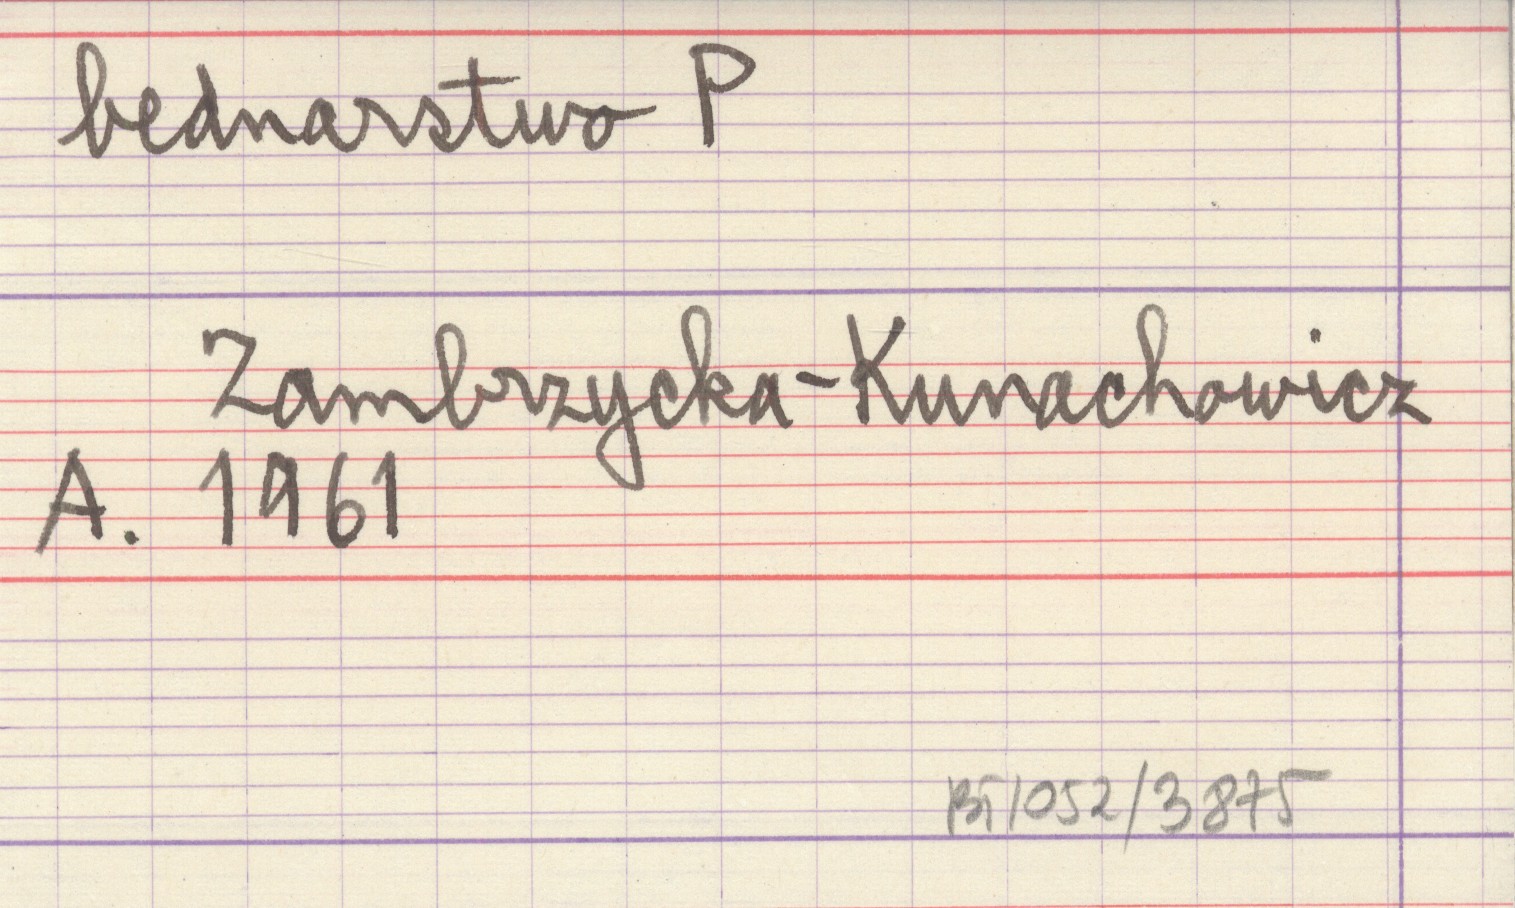 bednarstwo P
Zambrzycka-Kunachowicz
A. 1961
BI/1052/3875